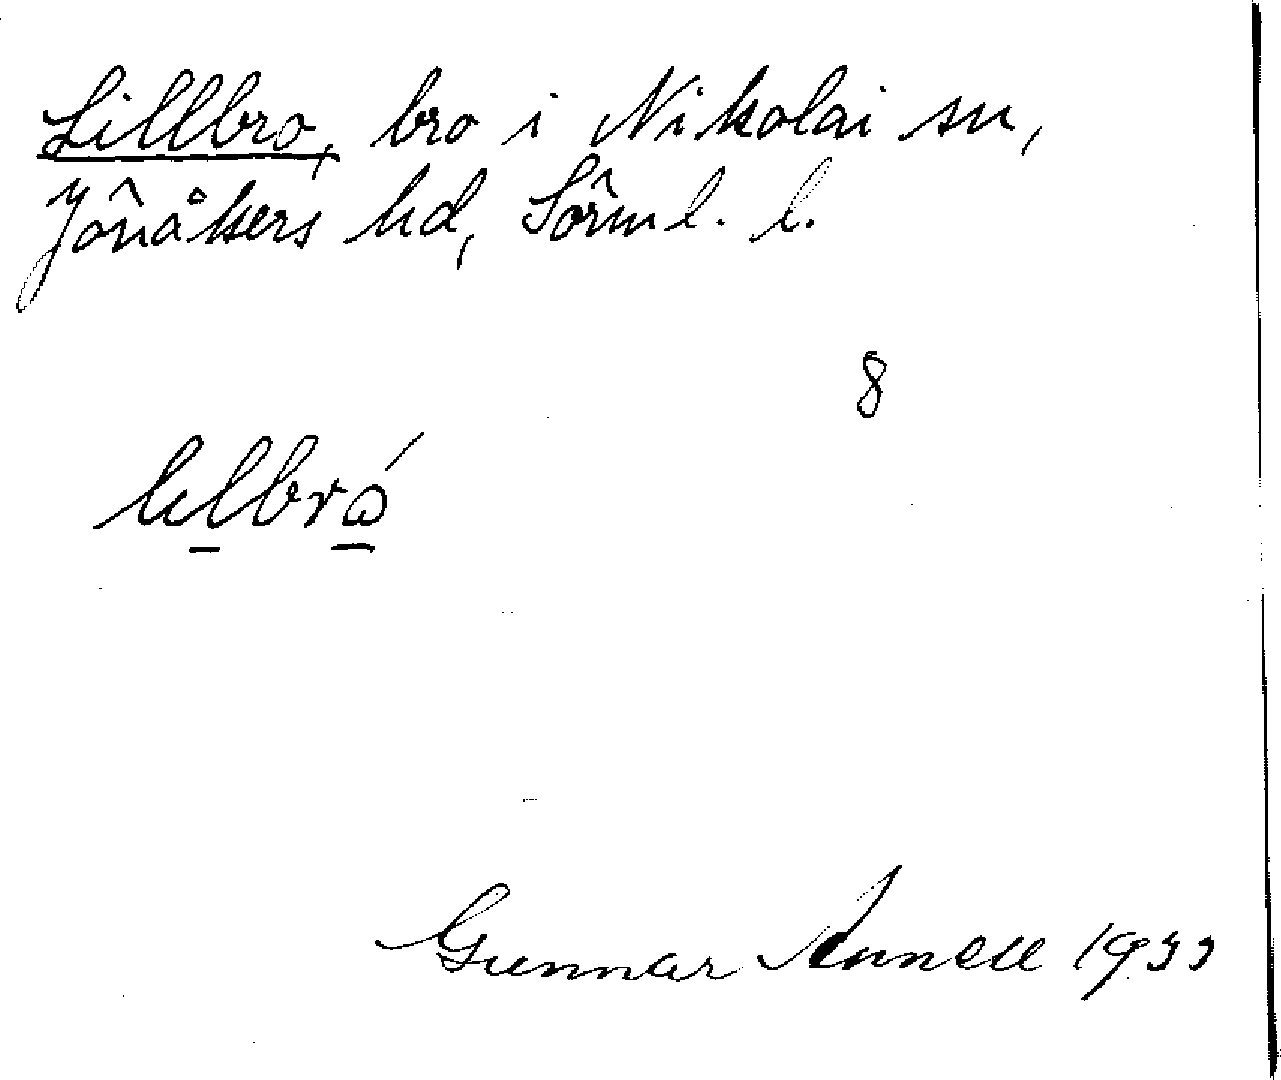 Lillbro, bro i Nikolai sn,
Jönåkers hd, Sörml. l.
8
Gunnar Annell 1933